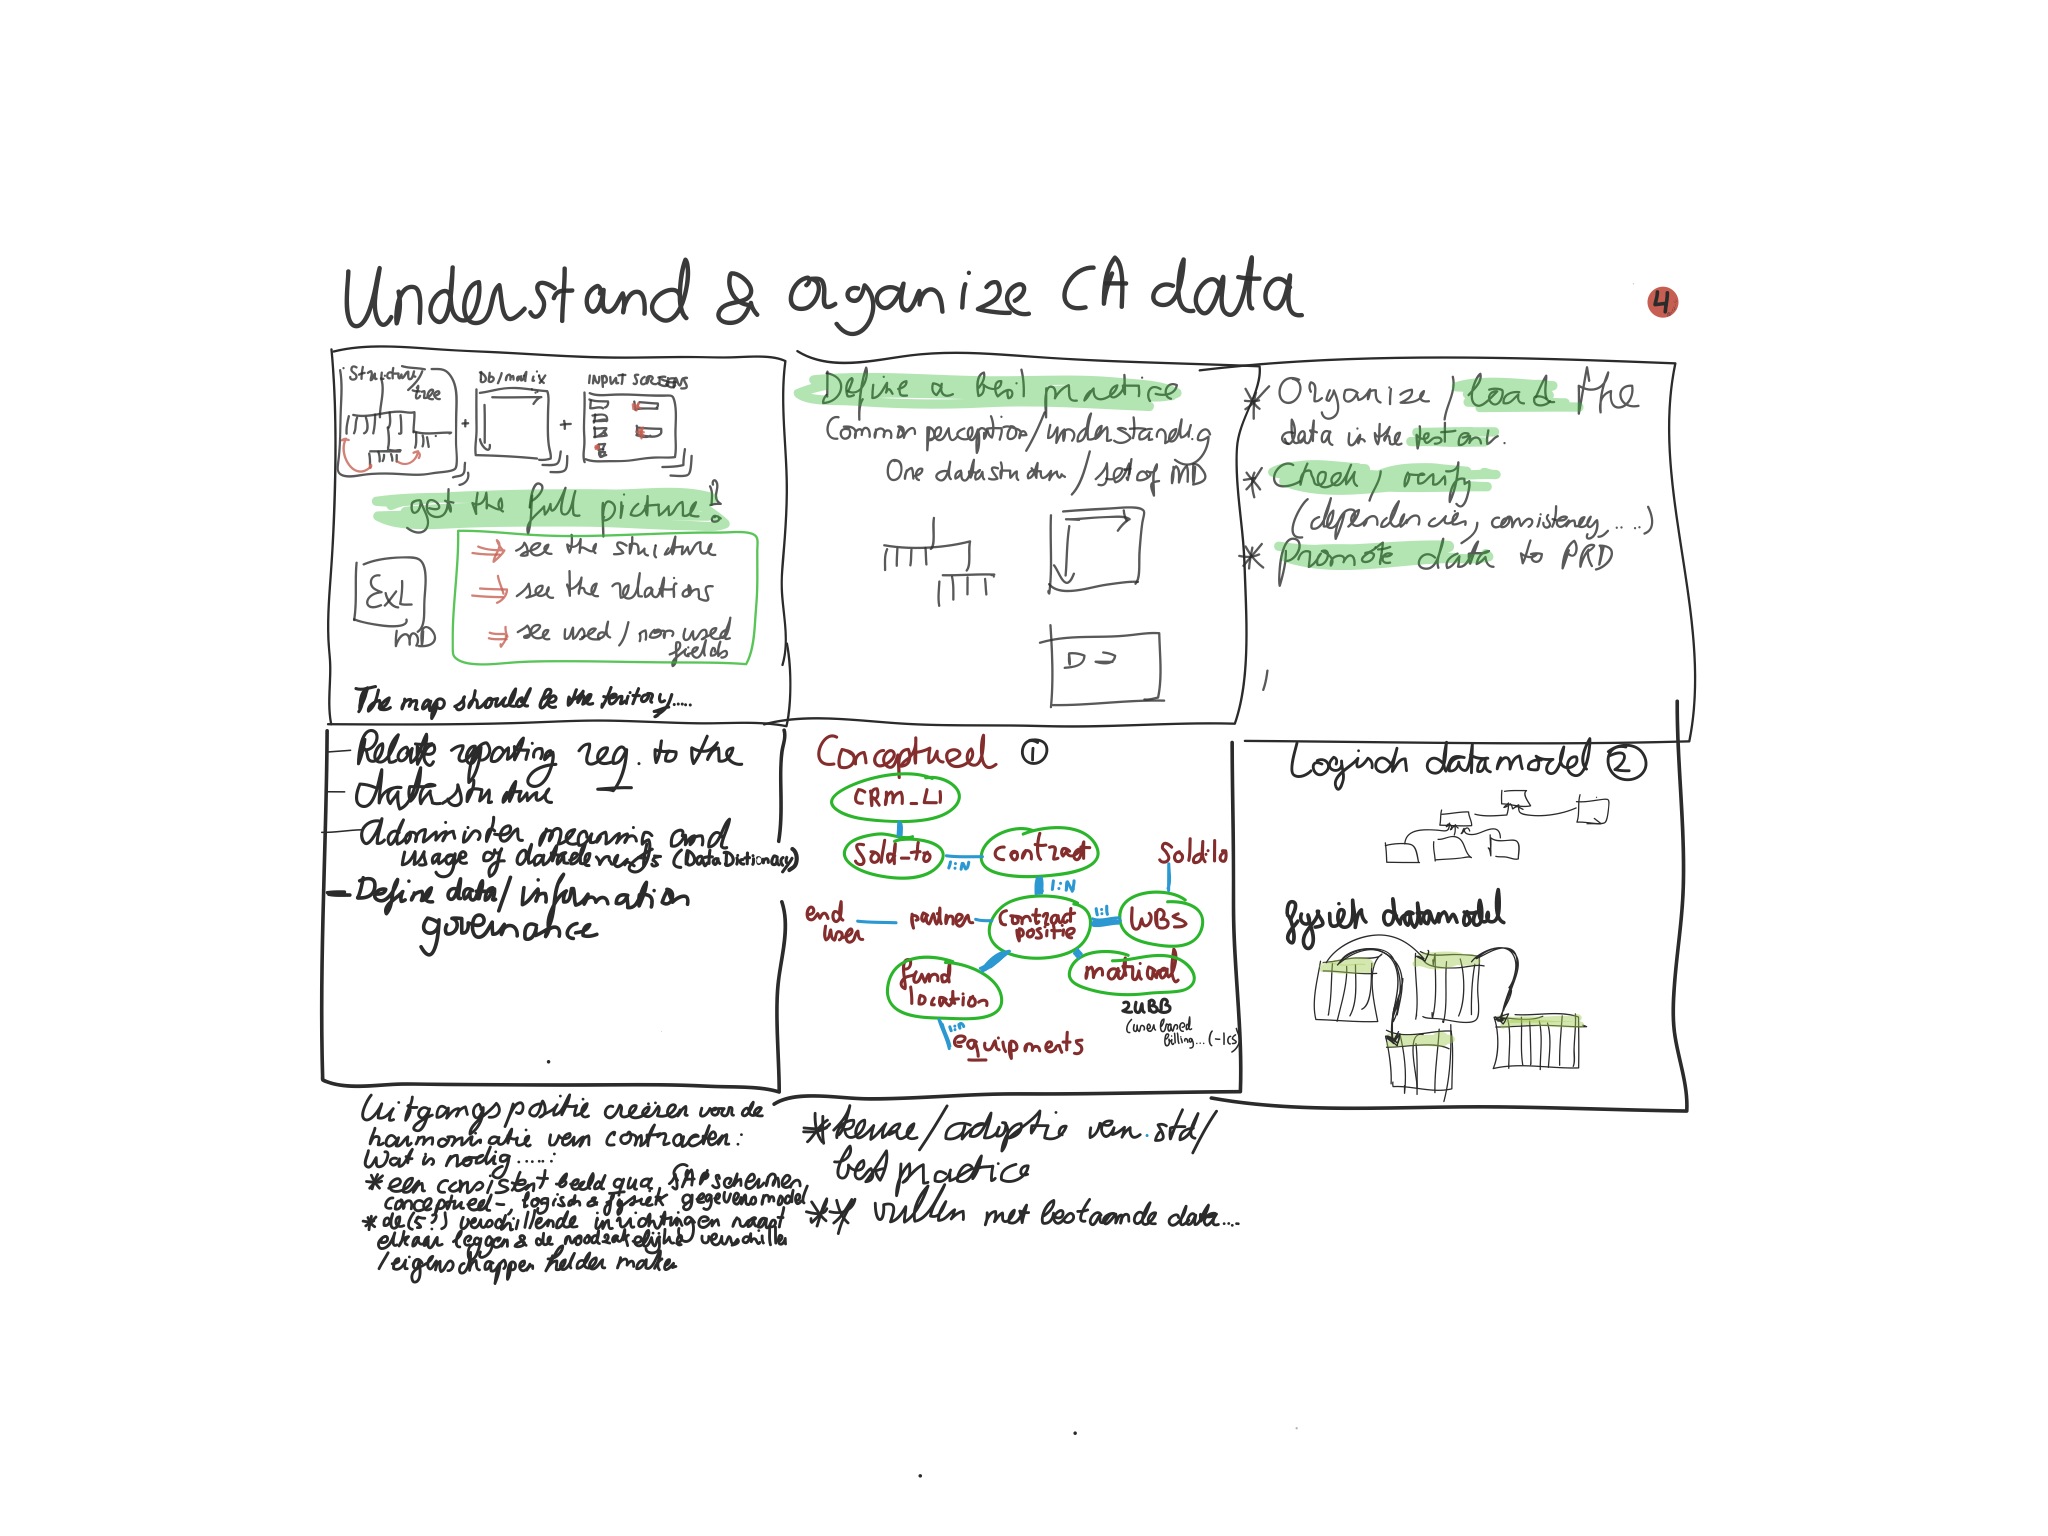 Understand & organize CA data
4
Structure/
tree
Db/matrix
INPUT SCREENS
+
+
get the full picture!
see the structure
see the relations
see used / non used
fields
ExL
MD
The map should be the territory.....
Define a best practice
Common perception/understanding
One datastructure / set of MD
* Organize / load the
data in the
* Check / verify
(dependencies, consistency, .....)
* Promote data to PRD
- Relate reporting req. to the
- data structure
- Administer meaning and
usage of dataelements (Data Dictionary)
- Define data / information
governance
Conceptueel 1
CRM_LI
Sold-to
1:N
contract
1:N
Sold-to
end
user
partner
contract
positie
1:1
WBS
fund
location
material
ZUBB
(user based
billing...
1:n
equipments
Logisch datamodel 2
fysiek datamodel
Uitgangspositie creëren voor de
harmonisatie van contracten:
Wat is nodig.....:
* een consistent beeld qua SAP schermen
conceptueel-, logisch & fysiek gegevensmodel
* de (5?) verschillende inrichtingen naast
elkaar leggen & de noodzakelijke verschillen
/ eigenschappen helder maken
* keuze / adoptie van std /
best practice
** vullen met bestaande data...